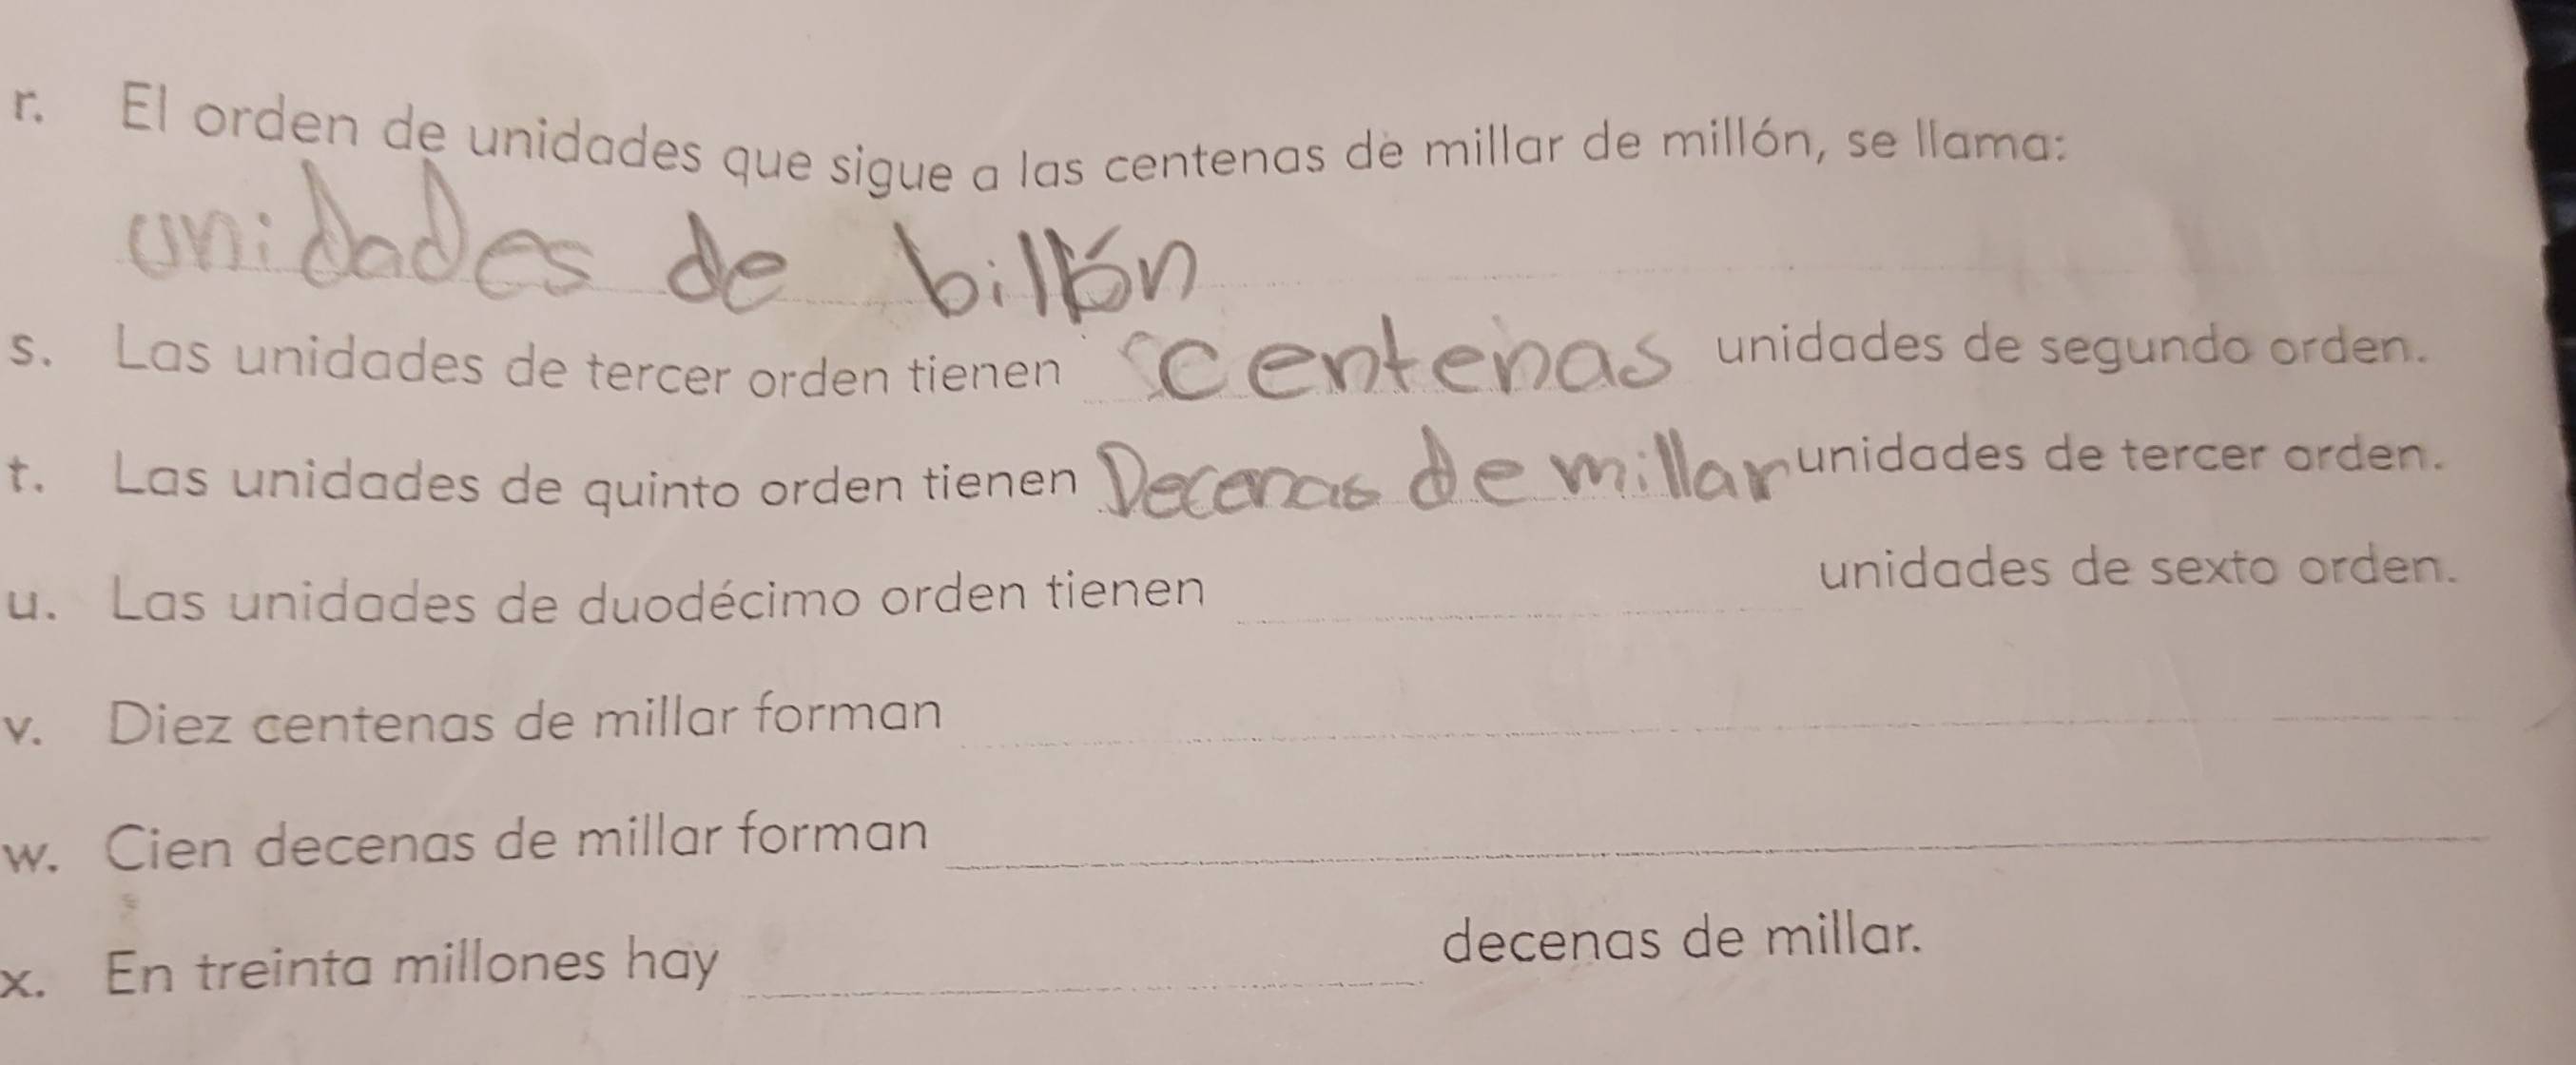 r. El orden de unidades que sigue a las centenas de millar de millón, se llama:
unidades de billón
s. Las unidades de tercer orden tienen centenas unidades de segundo orden.
t. Las unidades de quinto orden tienen Decenas de millar unidades de tercer orden.
u. Las unidades de duodécimo orden tienen unidades de sexto orden.
v. Diez centenas de millar forman
w. Cien decenas de millar forman
x. En treinta millones hay decenas de millar.